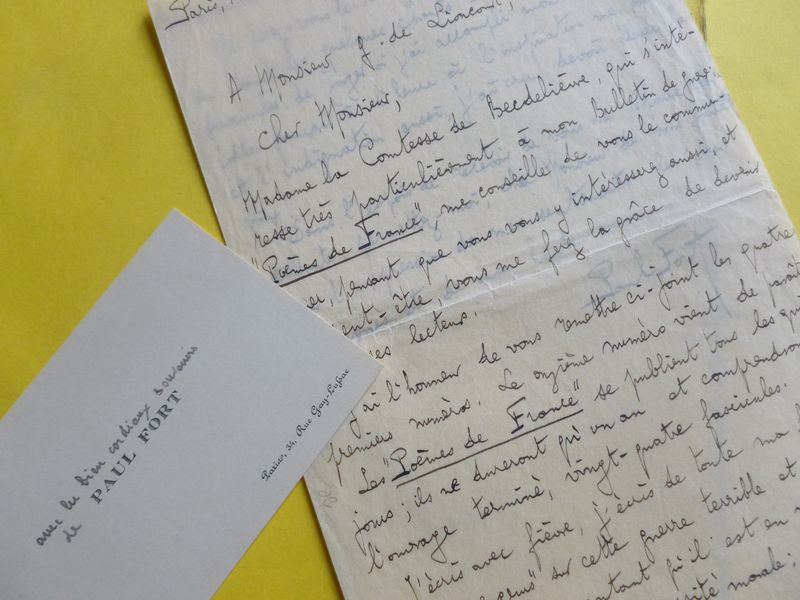 Paris,
A Monsieur J. de Lioncourt,
Cher Monsieur,
Madame la Comtesse de Becdelièvre, qui s'inté-
resse très particulièrement à mon bulletin de guerre
"Poèmes de France", me conseille de vous le commu-
er, pensant que vous vous y intéresserez aussi, et
ent-être, vous me ferez la grâce de devenir
ses lecteurs.
J'ai l'honneur de vous remettre ci-joint les quatre
premiers numéros. Le onzième numéro vient de paraît
Les "Poèmes de France" se publient tous les qui
jours; ils ne dureront qu'un an et comprendron
l'ouvrage terminé, vingt-quatre fascicules.
J'écris avec fièvre, j'écris de toute ma
sur cette guerre terrible et
autant qu'il est en
sité morale;
avec les bien cordiaux souvenirs
de
PAUL FORT
Paris, 34, Rue Gay-Lussac
Paul Fort